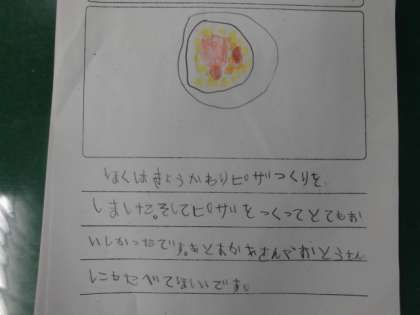 ぼくはきょうかわりピザつくりを
しました。そしてピザをつくってとてもお
いしかったです。きとおかあさんがおとうさん
にもたべてほしいです。